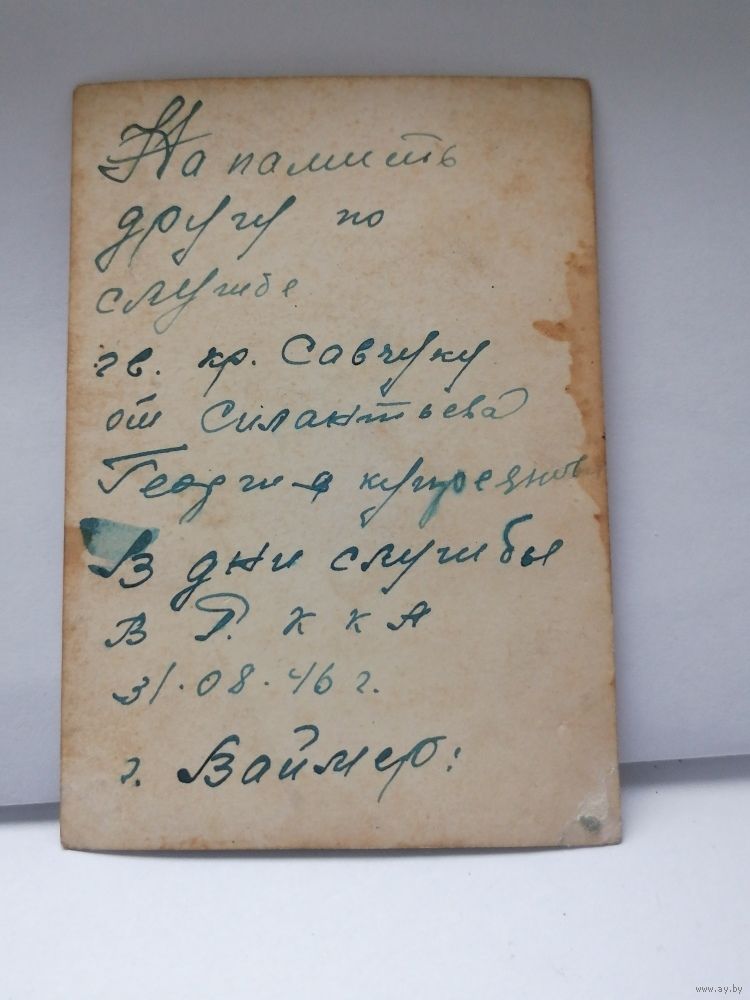 На памить
другу по
службе
гв. кр. Савчуку
от Силантьева
Георгия
В дни службы
в Р. К К А
31.08.46 г.
г. Ваймер.
www.ay.by